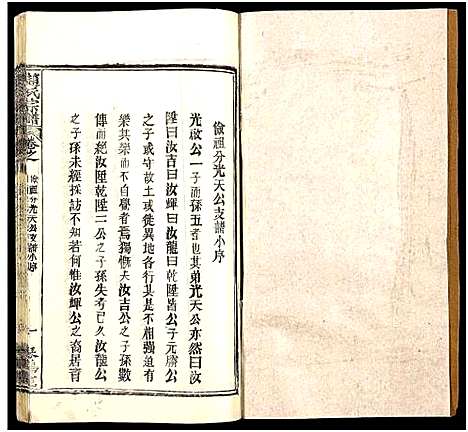 儉祖分光天公支譜小序
光啟公一子而孫五者也其弟光天公亦然曰汝
陞曰汝吉曰汝輝曰汝龍曰乾陞皆公子元磨公
之子或守故土或徙異地各行其是不相強迫有
樂其樂而不自覺者焉獨慨夫汝吉公之子孫數
傳而絕汝陞乾陞二公之子孫失考已久汝龍公
之子孫未經採訪不知若何惟汝輝公之裔居育
氏宗譜
卷之
儉祖分光天公支譜小序
一